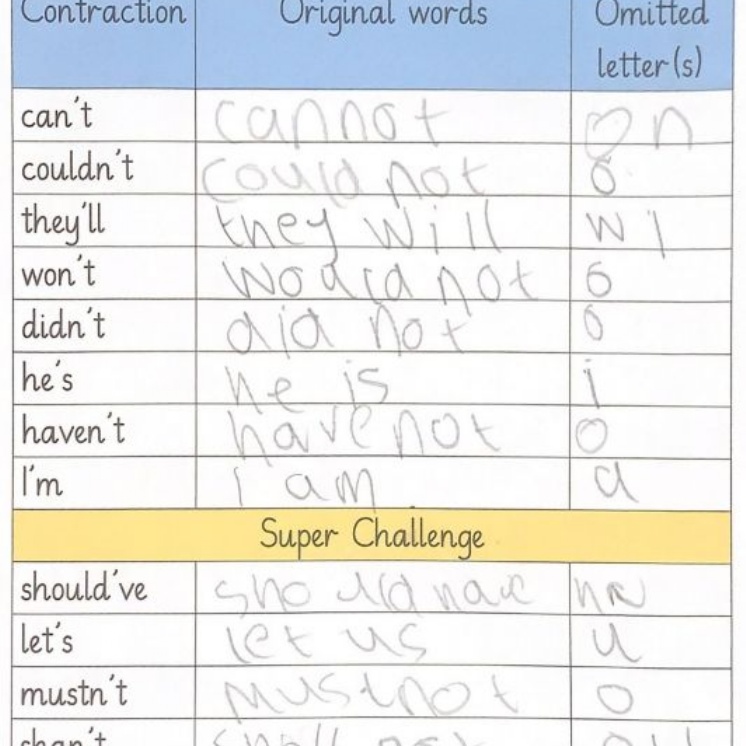 Contraction Original words Omitted letter(s)
can't cannot on
couldn't could not o
they'll they will wi
won't would not o
didn't did not o
he's he is i
haven't have not o
I'm I am a
Super Challenge
should've should have ha
let's let us u
mustn't must not o
shan't shall not